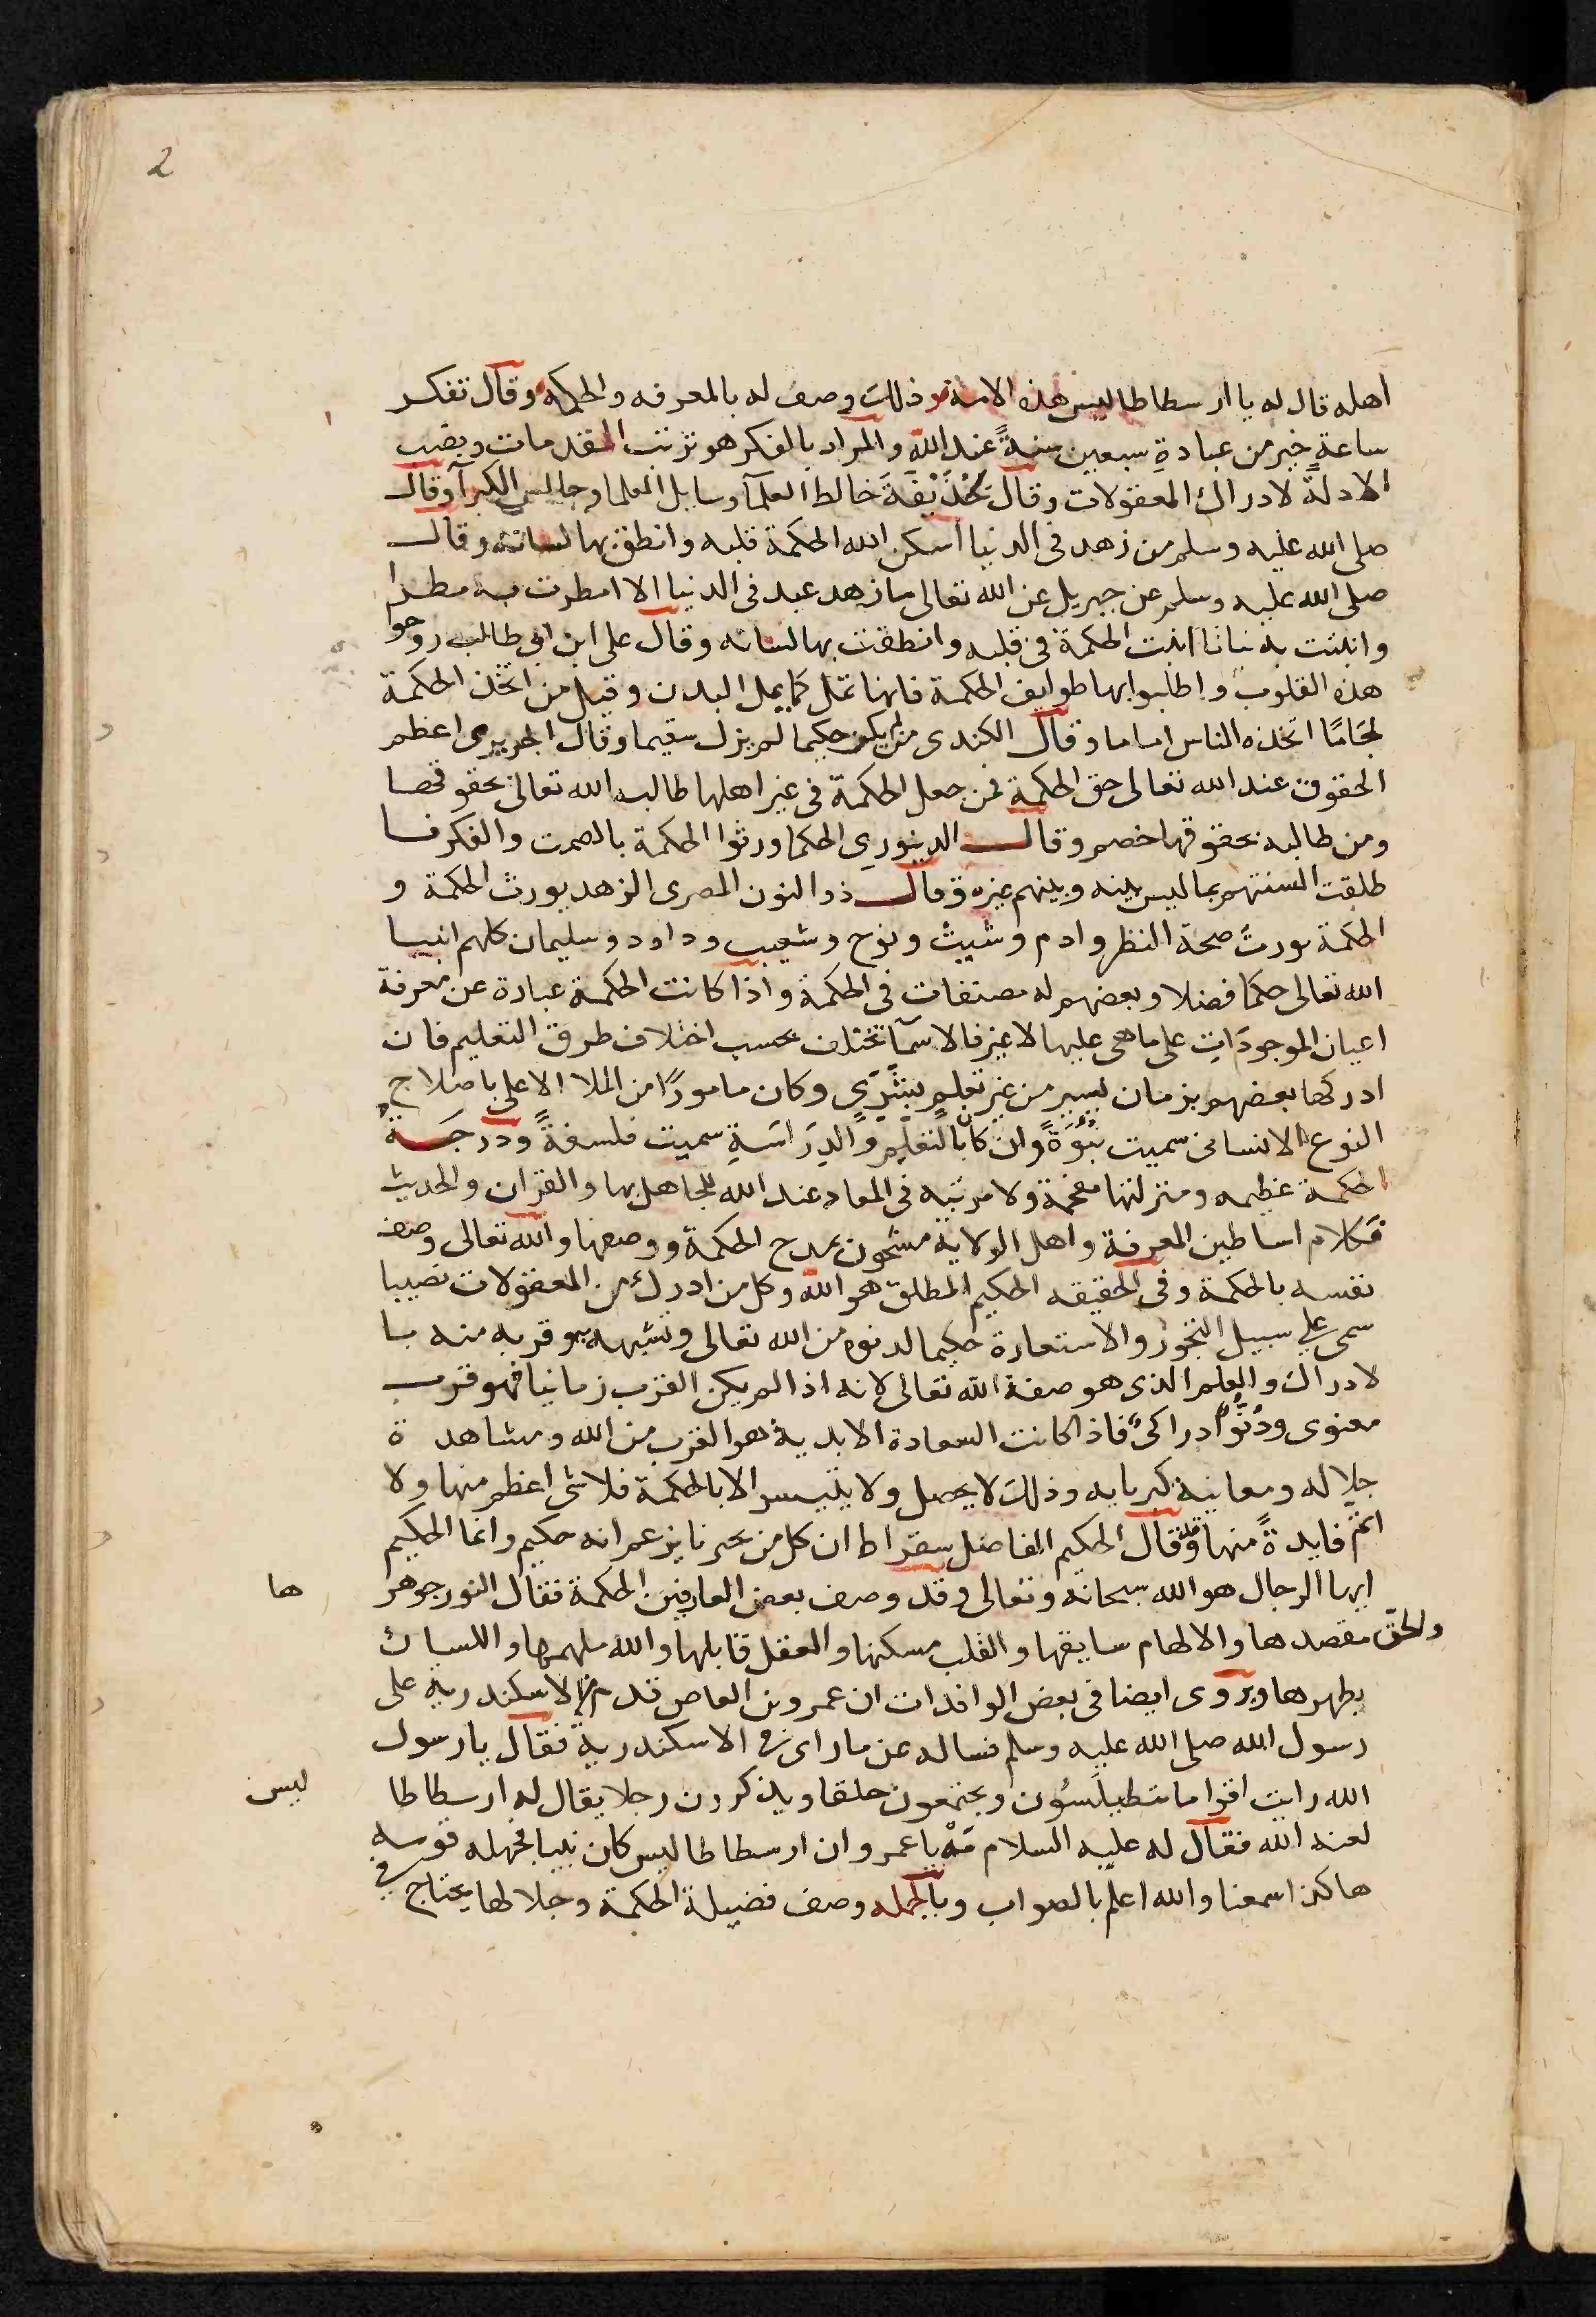 2
اهله قال له يا ارسطاطاليس هذه الامة وذلك وصف له بالمعرفه والحكمه وقال تفكر
ساعةٍ خير من عبادةِ سبعين سنةً عند الله والمراد بالفكر هو ترتيب المقدمات ونصب
الادلة لادراك المعقولات وقال لحُذَيْفَةَ خالط العلمآ وسايل العلما وجالس الكبرآ وقال
صلى الله عليه وسلم من زهد فى الدنيا اسكن الله الحكمة قلبه وانطق بها لسانه وقال
صلى الله عليه وسلم عن جبريل عن الله تعالى ما زهد عبد فى الدنيا الا امطرت به مطرا
وانبتت به نباتا انبت الحكمة فى قلبه وانطقت بها لسانه وقال على ابن ابى طالب روحوا
هذه القلوب واطلبوا بها طوايف الحكمة فانها تمل كما يمل البدن وقيل من اتخذ الحكمة
لجَامًا اتخذه الناس اماما وقال الكندى من لم يكن حكيما لم يزل سقيما وقال الجريرى اعظم
الحقوق عند الله تعالى حق الحكمة فمن جعل الحكمة فى غير اهلها طالبه الله تعالى بحقوقها
ومن طالبه بحقوقها خصم وقال الدينورى الحكما ورثوا الحكمة بالصمت والفكر فا
طلقت السنتهم بما ليس بينه وبينهم غيره وقال ذو النون المصرى الزهد يورث الحكمة و
الحكمة تورث صحة النظر وادم وشيث ونوح وشعيب وداود وسليمان كلهم انبيا
الله تعالى حكما فضلا وبعضهم له مصنفات فى الحكمة واذا كانت الحكمة عبادة عن معرفة
اعيان الموجودَاتِ على ما هى عليها لا غير فالاسمآ تختلف بحسب اختلاف طرق التعليم فان
ادركها بعضهم بزمان يسير من غير تعلم بشرى وكان مامورًا من الملا الاعلى باصلاح
النوع الانسانى سميت نُبُوَّةً وان كان بالتعليم والدِرَاسَةِ سميت فلسفةً ودرجةُ
الحكمة عظيمه ومنزلتها مفخمة ولا مرتبه فى المعاد عند الله للجاهل بها والقران والحديث
فكلام اساطين المعرفة واهل الولاية مشحون بمدح الحكمة ووصفها والله تعالى وصف
نفسه بالحكمة وفى الحقيقه الحكيم المطلق هو الله وكل من ادرك من المعقولات نصيبا
سمى على سبيل التجوز والاستعارة حكيما لدنوه من الله تعالى وتشبهه به وقربه منه با
لادراك والعلم الذى هو صفة الله تعالى لانه اذا لم يكن القرب زمانيا فهو قرب
معنوى ودُنُوٌّ ادراكىٌ فاذا كانت السعادة الابدية هو القرب من الله ومشاهدة
جلاله ومعاينة كبريايه وذلك لا يحصل ولا يتيسر الا بالحكمة فلا شى اعظم منها ولا
اتم فايدةً منها وقد قال الحكيم الفاضل سقراط ان كل من بحرنا يزعم انه حكيم وانما الحكيم
ايها الرجال هو الله سبحانه وتعالى وقد وصف بعض العارفين الحكمة فقال النور جوهر ها
والحق مقصدها والالهام سايقها والقلب مسكنها والعقل قابلها والله ملهمها واللسان
يطهرها ويروى ايضا فى بعض الوافدات ان عمرو بن العاص قدم من الاسكندريه على
رسول الله صلى الله عليه وسلم فساله عن ما راى فى الاسكندرية فقال يا رسول
الله رايت اقواما يتطيلسُون ويجتمعون حلقا ويذكرون رجلا يقال له ارسطاطا ليس
لعنه الله فقال له عليه السلام مَهْ يا عمرو ان ارسطاطاليس كان نبيا فجهله قومه
هاكذا سمعنا والله اعلم بالصواب وبالجمله وصف فضيلة الحكمة وجلالها يحتاج فى